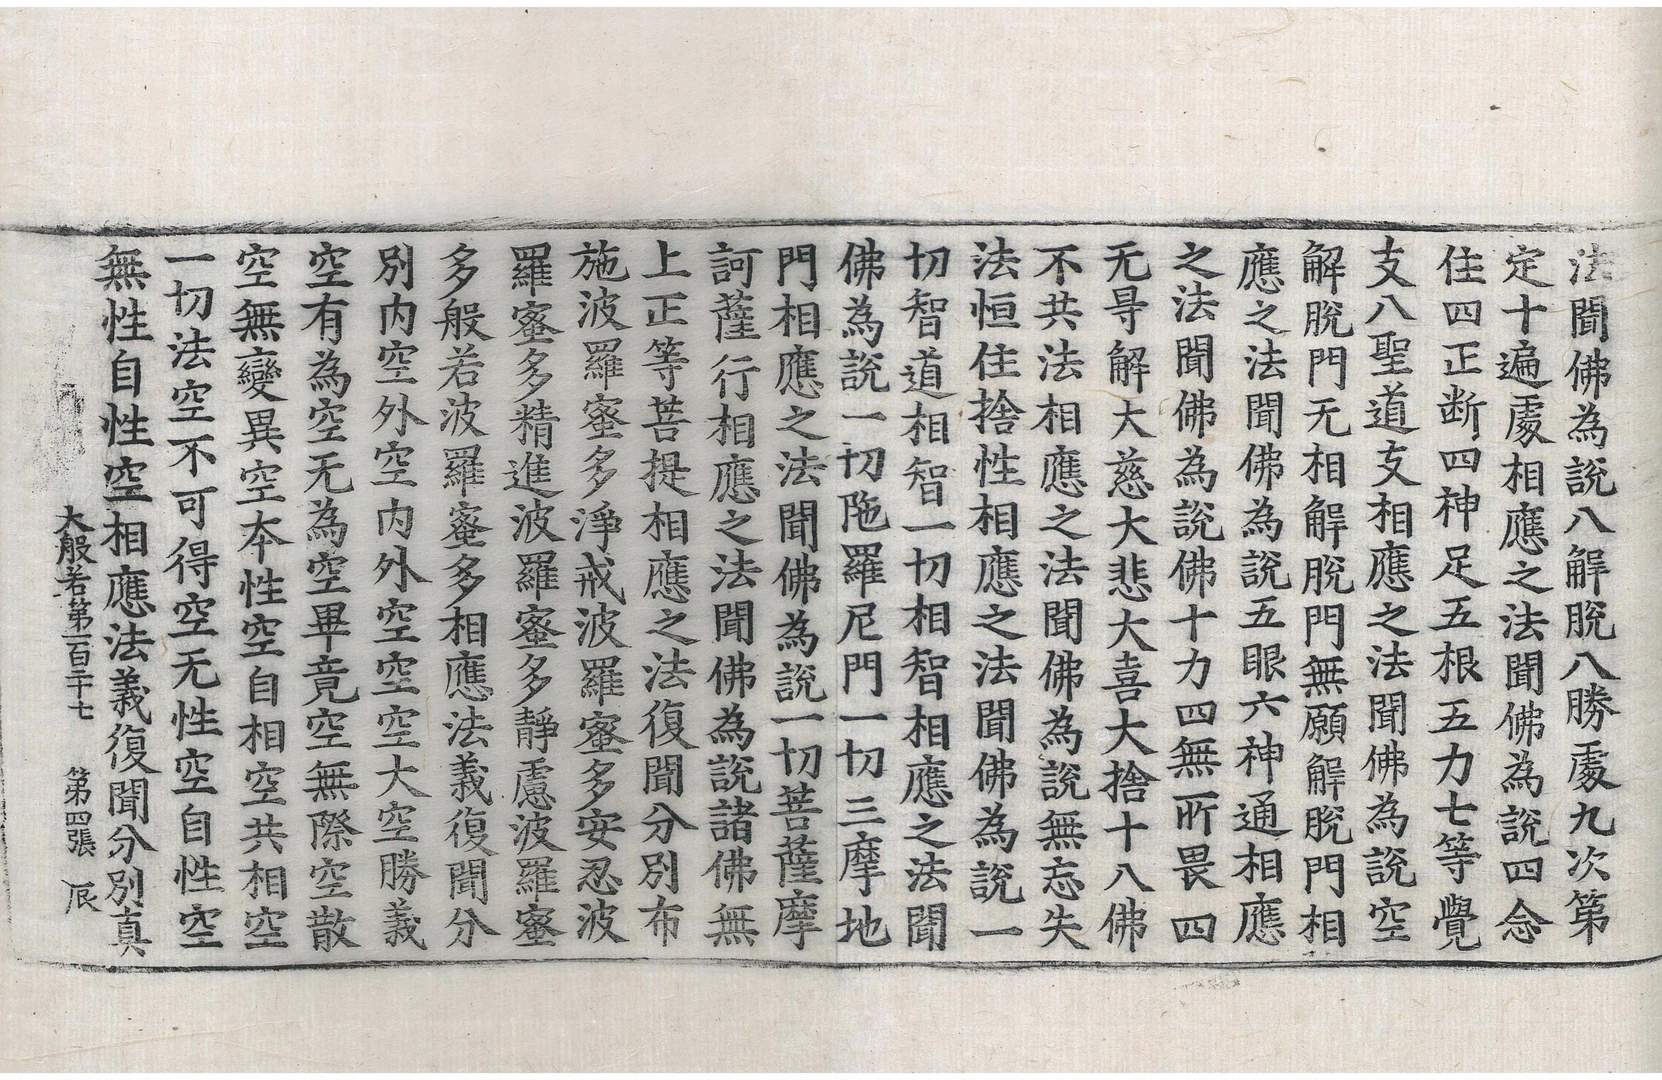 法聞佛為說八解脫八勝處九次第
定十遍處相應之法聞佛為說四念
住四正断四神足五根五力七等覺
支八聖道支相應之法聞佛為說空
解脫門无相解脫門無願解脫門相
應之法聞佛為說五眼六神通相應
之法聞佛為說佛十力四無所畏四
无㝵解大慈大悲大喜大捨十八佛
不共法相應之法聞佛為說無忘失
法恒住捨性相應之法聞佛為說一
切智道相智一切相智相應之法聞
佛為說一切陁羅尼門一切三摩地
門相應之法聞佛為說一切菩薩摩
訶薩行相應之法聞佛為說諸佛無
上正等菩提相應之法復聞分別布
施波羅蜜多淨戒波羅蜜多安忍波
羅蜜多精進波羅蜜多靜慮波羅蜜
多般若波羅蜜多相應法義復聞分
別內空外空內外空空空大空勝義
空有為空无為空畢竟空無際空散
空無變異空本性空自相空共相空
一切法空不可得空无性空自性空
無性自性空相應法義復聞分別真
大般若第一百二十七 第四張 辰